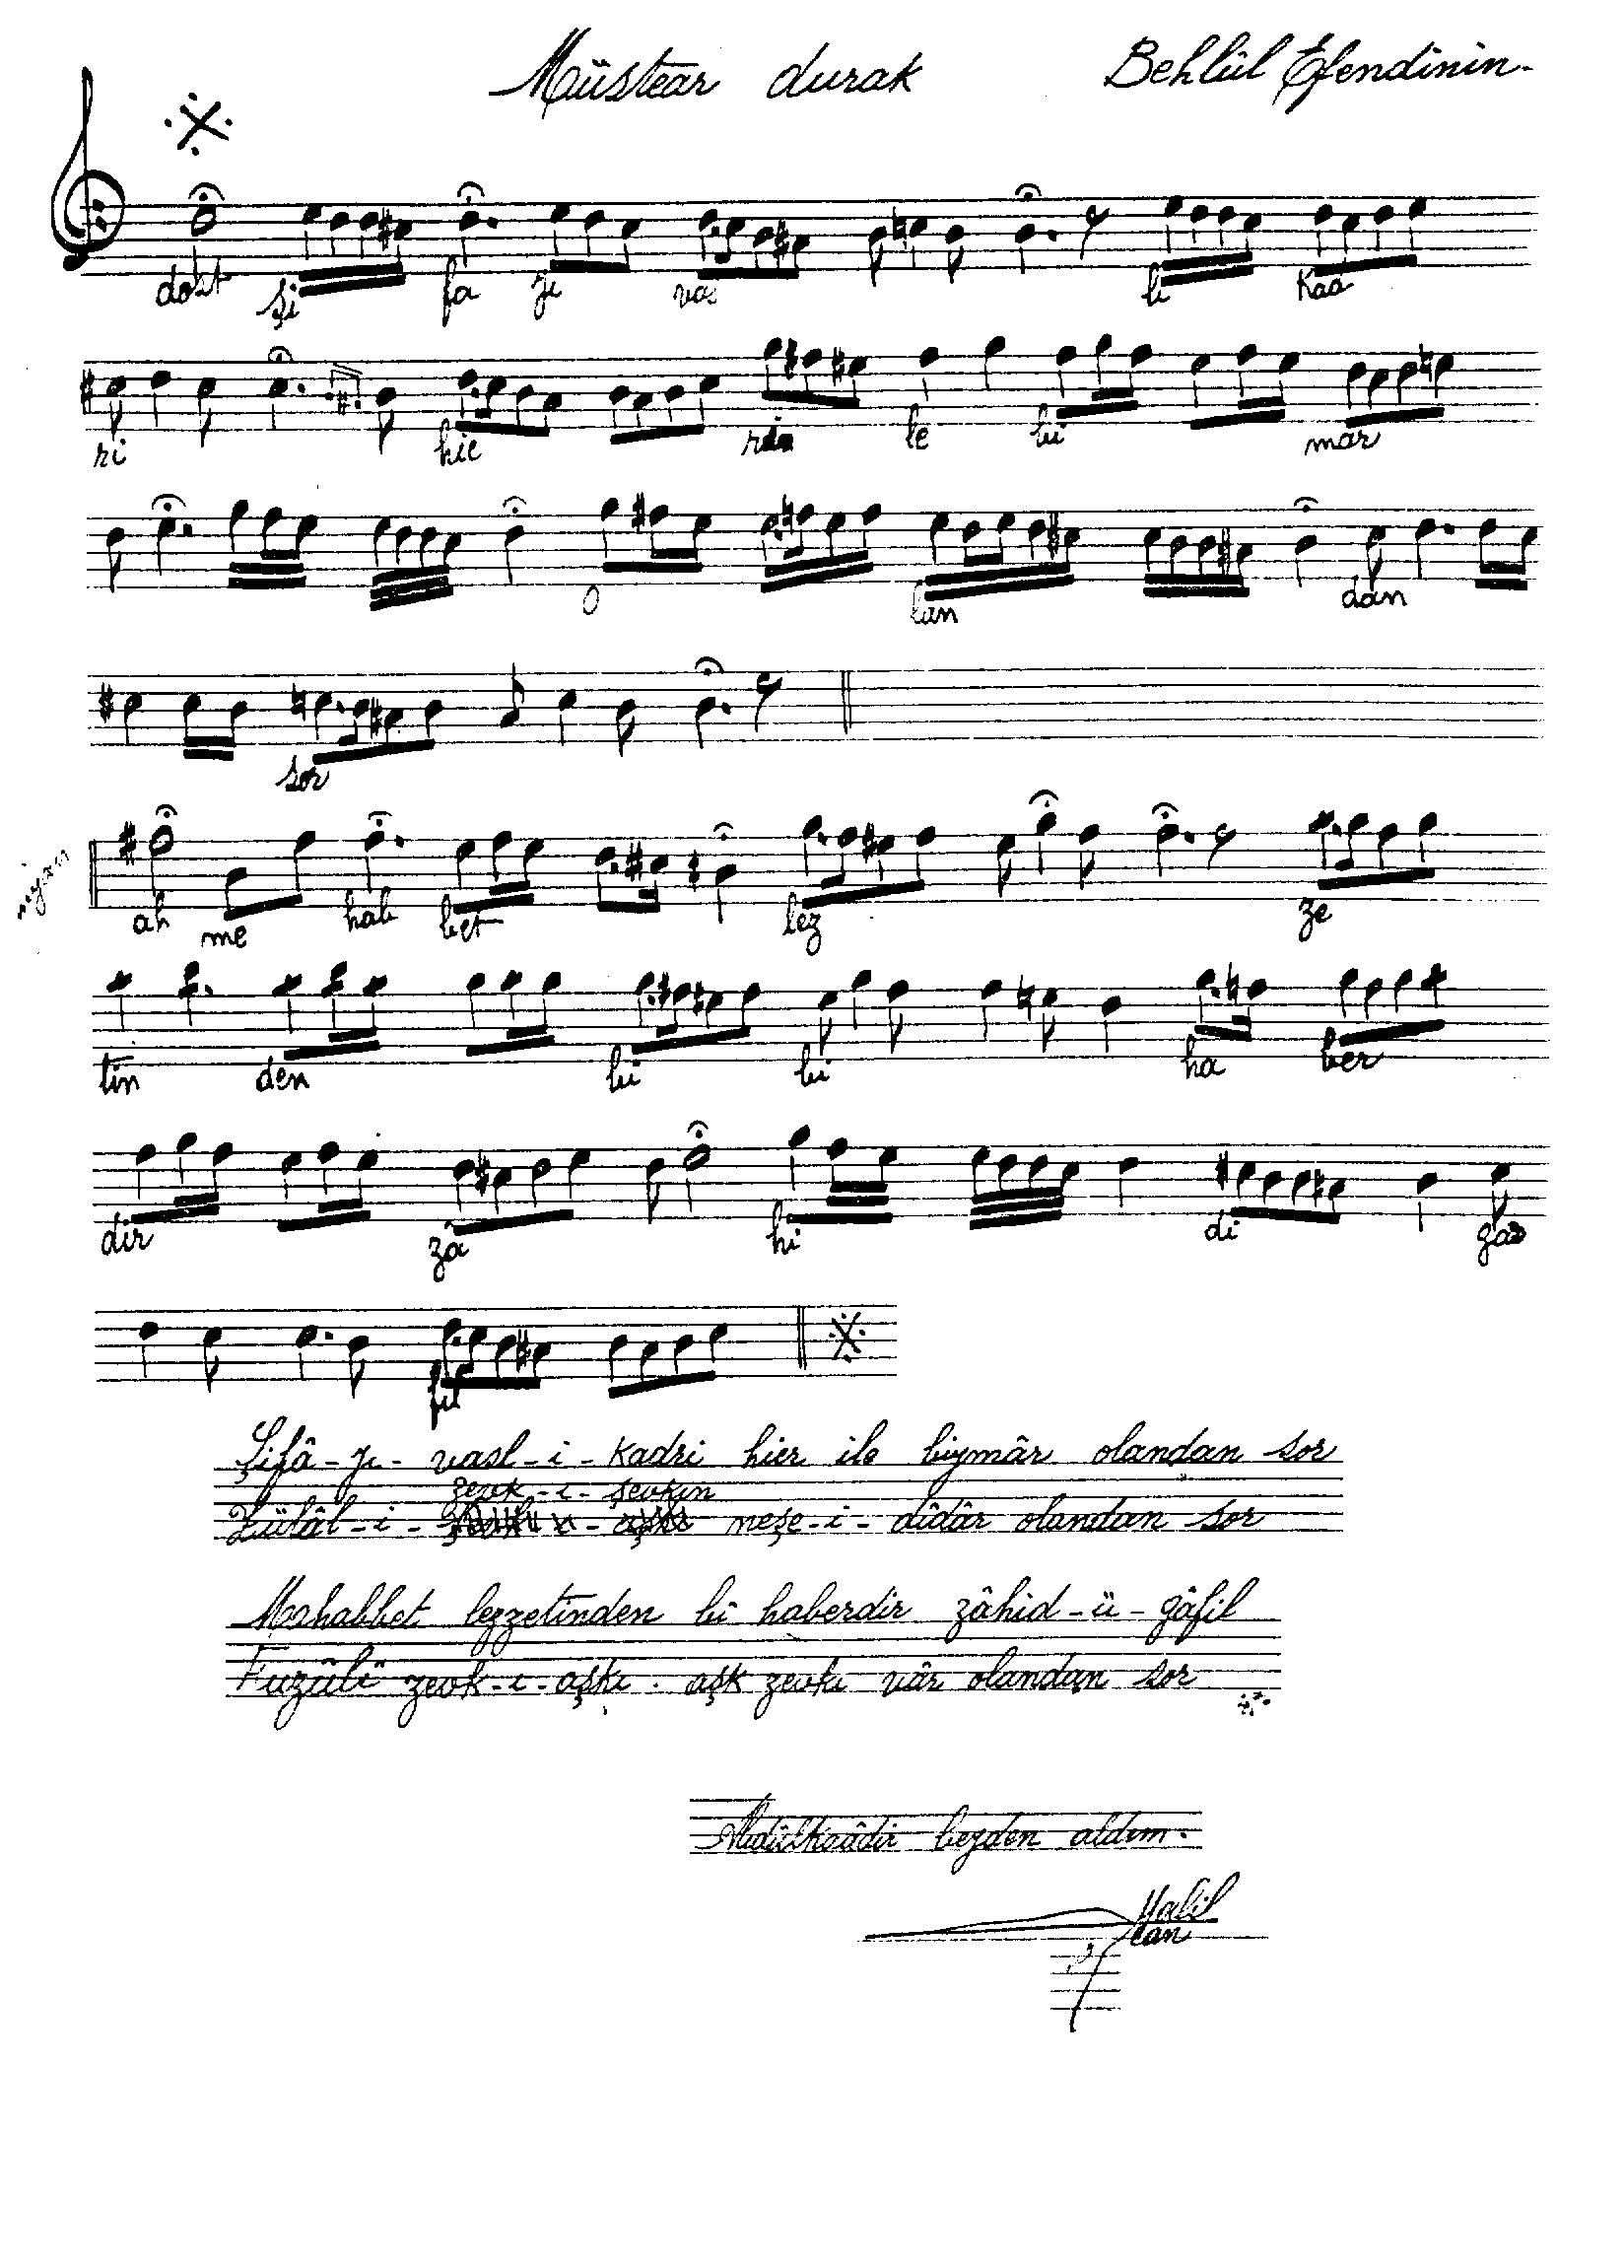 Müstear durak Behlül Efendinin.
dost şi fa zı va li Kaa
ri hic rin le bi mar
O lan dan
sor
miyan
ah me hab bet lez ze
tin den bi bi ha ber
dir zâ hi di gaa
fil
Şifâ-yı-vasl-i-Kadri hicr ile biymâr olandan sor
zevk-i-şevkın
Zülâl-i- neşe-i-dîdâr olandan sor
Mahabbet lezzetinden bî haberdir zâhid-ü-gâfil
Fuzûlî zevk-ı-aşkı. aşk zevkı vâr olandan sor
Abdülkaâdir beyden aldım.
Halil
Can